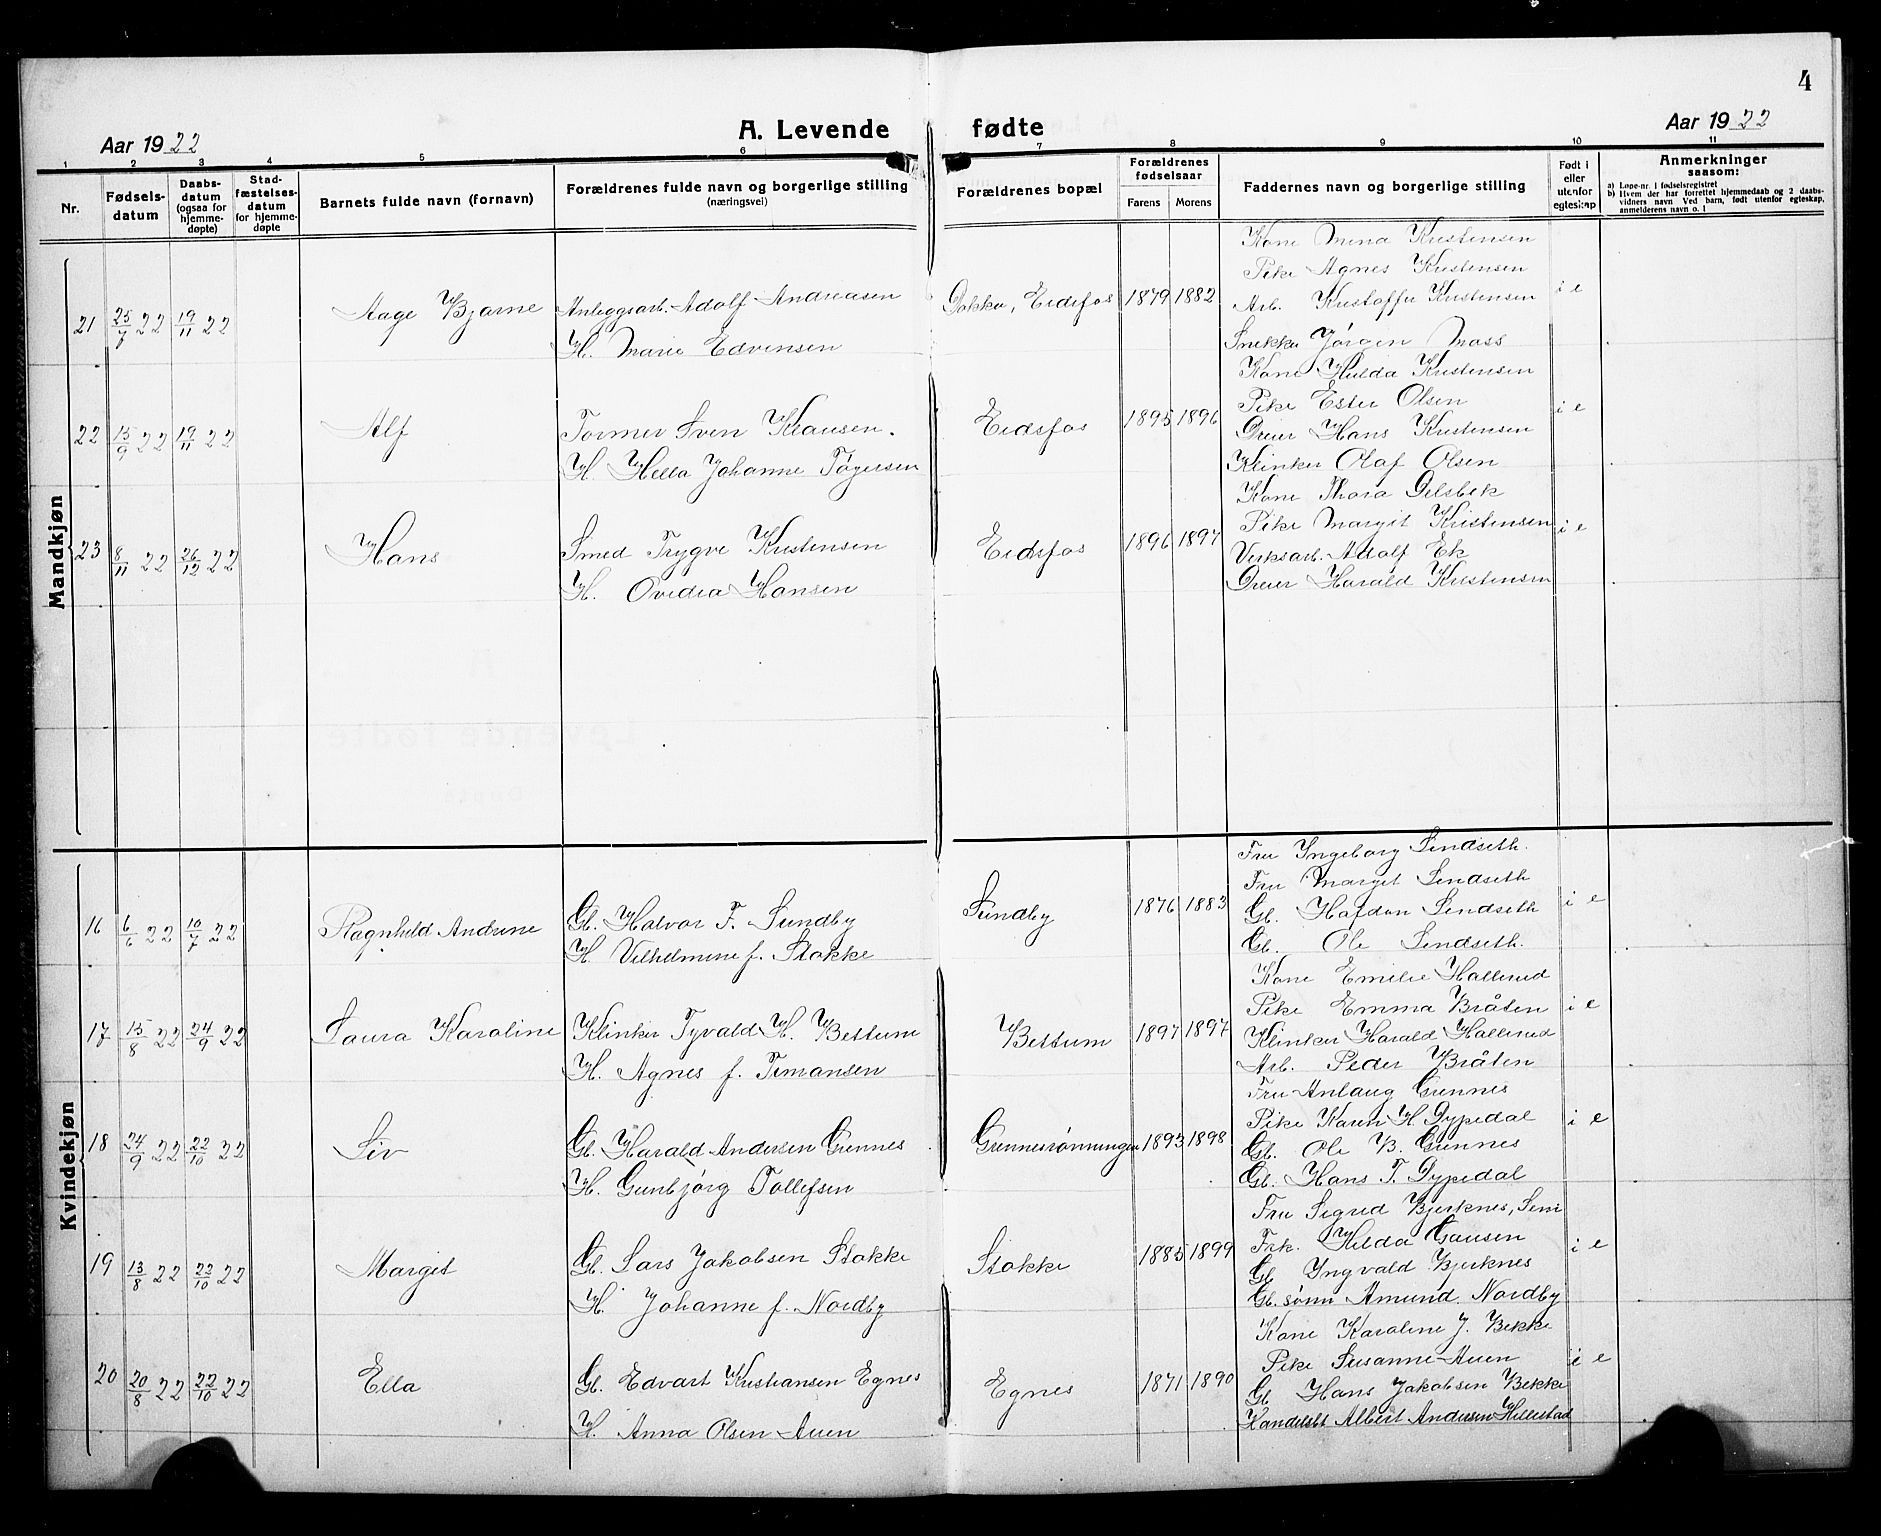 4
Aar 1922
A. Levende fødte
Aar 1922
1 2 3 4 5 6 7 8 9 10 11
Nr.
Fødsels-
datum
Daabs-
datum
(ogsaa for
hjemme-
døpte)
Stad-
fæstelses-
datum
for hjemme-
døpte
Barnets fulde navn (fornavn)
Forældrenes fulde navn og borgerlige stilling
(næringsvei)
Forældrenes bopæl
Forældrenes
fødselsaar
Farens Morens
Faddernes navn og borgerlige stilling
Født i
eller
utenfor
egteskap
Anmerkninger
saasom:
a) Løpe-nr. i fødselsregistret
b) Hvem der har forrettet hjemmedaab og 2 daabs-
vidners navn Ved barn, født utenfor egteskap,
anmelderens navn o. l
Mandkjøn
21 25/7 22 19/11 22 Aage Bjarne
Anleggsarb. Adolf Andreasen
H. Marie Edvensen
Dokka, Eidsfos 1879 1882
Kone Mina Kristensen
Pike Agnes Kristensen
Arb. Kristoffer Kristensen
Snekker Jörgen Moss
i e
22 15/9 22 19/11 22 Alf
Former Sven Klausen.
H. Hella Johanne Tögersen
Eidsfos 1895 1896
Kone Hulda Kristensen
Pike Ester Olsen
Dreier Hans Kristensen
Klinker Olaf Olsen
i e
23 8/11 22 26/12 22 Hans
Smed Trygve Kristensen
H. Ovidia Hansen
Eidsfos 1896 1897
Kone Thora Gilsbek
Pike Margit Kristensen
Verksarb. Adolf Ek
Dreier Harald Kristensen
i e
Kvindekjøn
16 6/6 22 10/7 22 Ragnhild Andrine
Gb. Halvor F. Sundby
H Vilhelmine f. Stokke
Sundby 1876 1883
Fru Yngeborg Sendseth.
Fru Margit Sendseth
Gb. Hafdan Sendseth
Gb. Ole Sendseth.
i e
17 15/8 22 24/9 22 Laura Karoline
Klinker Tyvald H. Bettum
H. Agnes f. Timansen
Bettum 1897 1897
Kone Emilie Hallerud
Pike Emma Bråten
Klinker Harald Hallerud
Arb. Peder Bråten
i e
18 24/9 22 22/10 22 Siv
Gb. Harald Andersen Gunnes
H. Gunbjörg Tollefsen
Gunnesrönningen 1893 1898
Fru Anlaug Gunnes
Pike Karen H. Dypedal
Gb. Ole B. Gunnes
Gb. Hans T. Dypedal
i e
19 13/8 22 22/10 22 Margit
Gb. Lars Jakobsen Stokke
H. Johanne f. Nordby
Stokke 1885 1899
Fru Sigrid Bjerknes, Sem
Frk. Hilda Gausen
Gb Yngvald Bjerknes
Gb. sönn Amund. Nordby
i e
20 20/8 22 22/10 22 Ella
Gb. Edvart Kristiansen Egnes
H. Anna Olsen Auen
Egnes 1871 1890
Kone Karoline J. Bekke
Pike Susanne Auen
Gb Hans Jakobsen Bekke
Handelsbt Albert Andersen Hillestad
i e